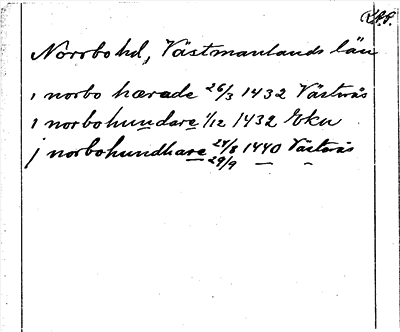 R.A.P.
Norrbo hd, Västmanlands län
i norbo hærade 26/3 1432 Västerås
i norbohundare 1/12 1432 Eka
j norbohundhare 24/8 1440 Västerås
29/9 — —